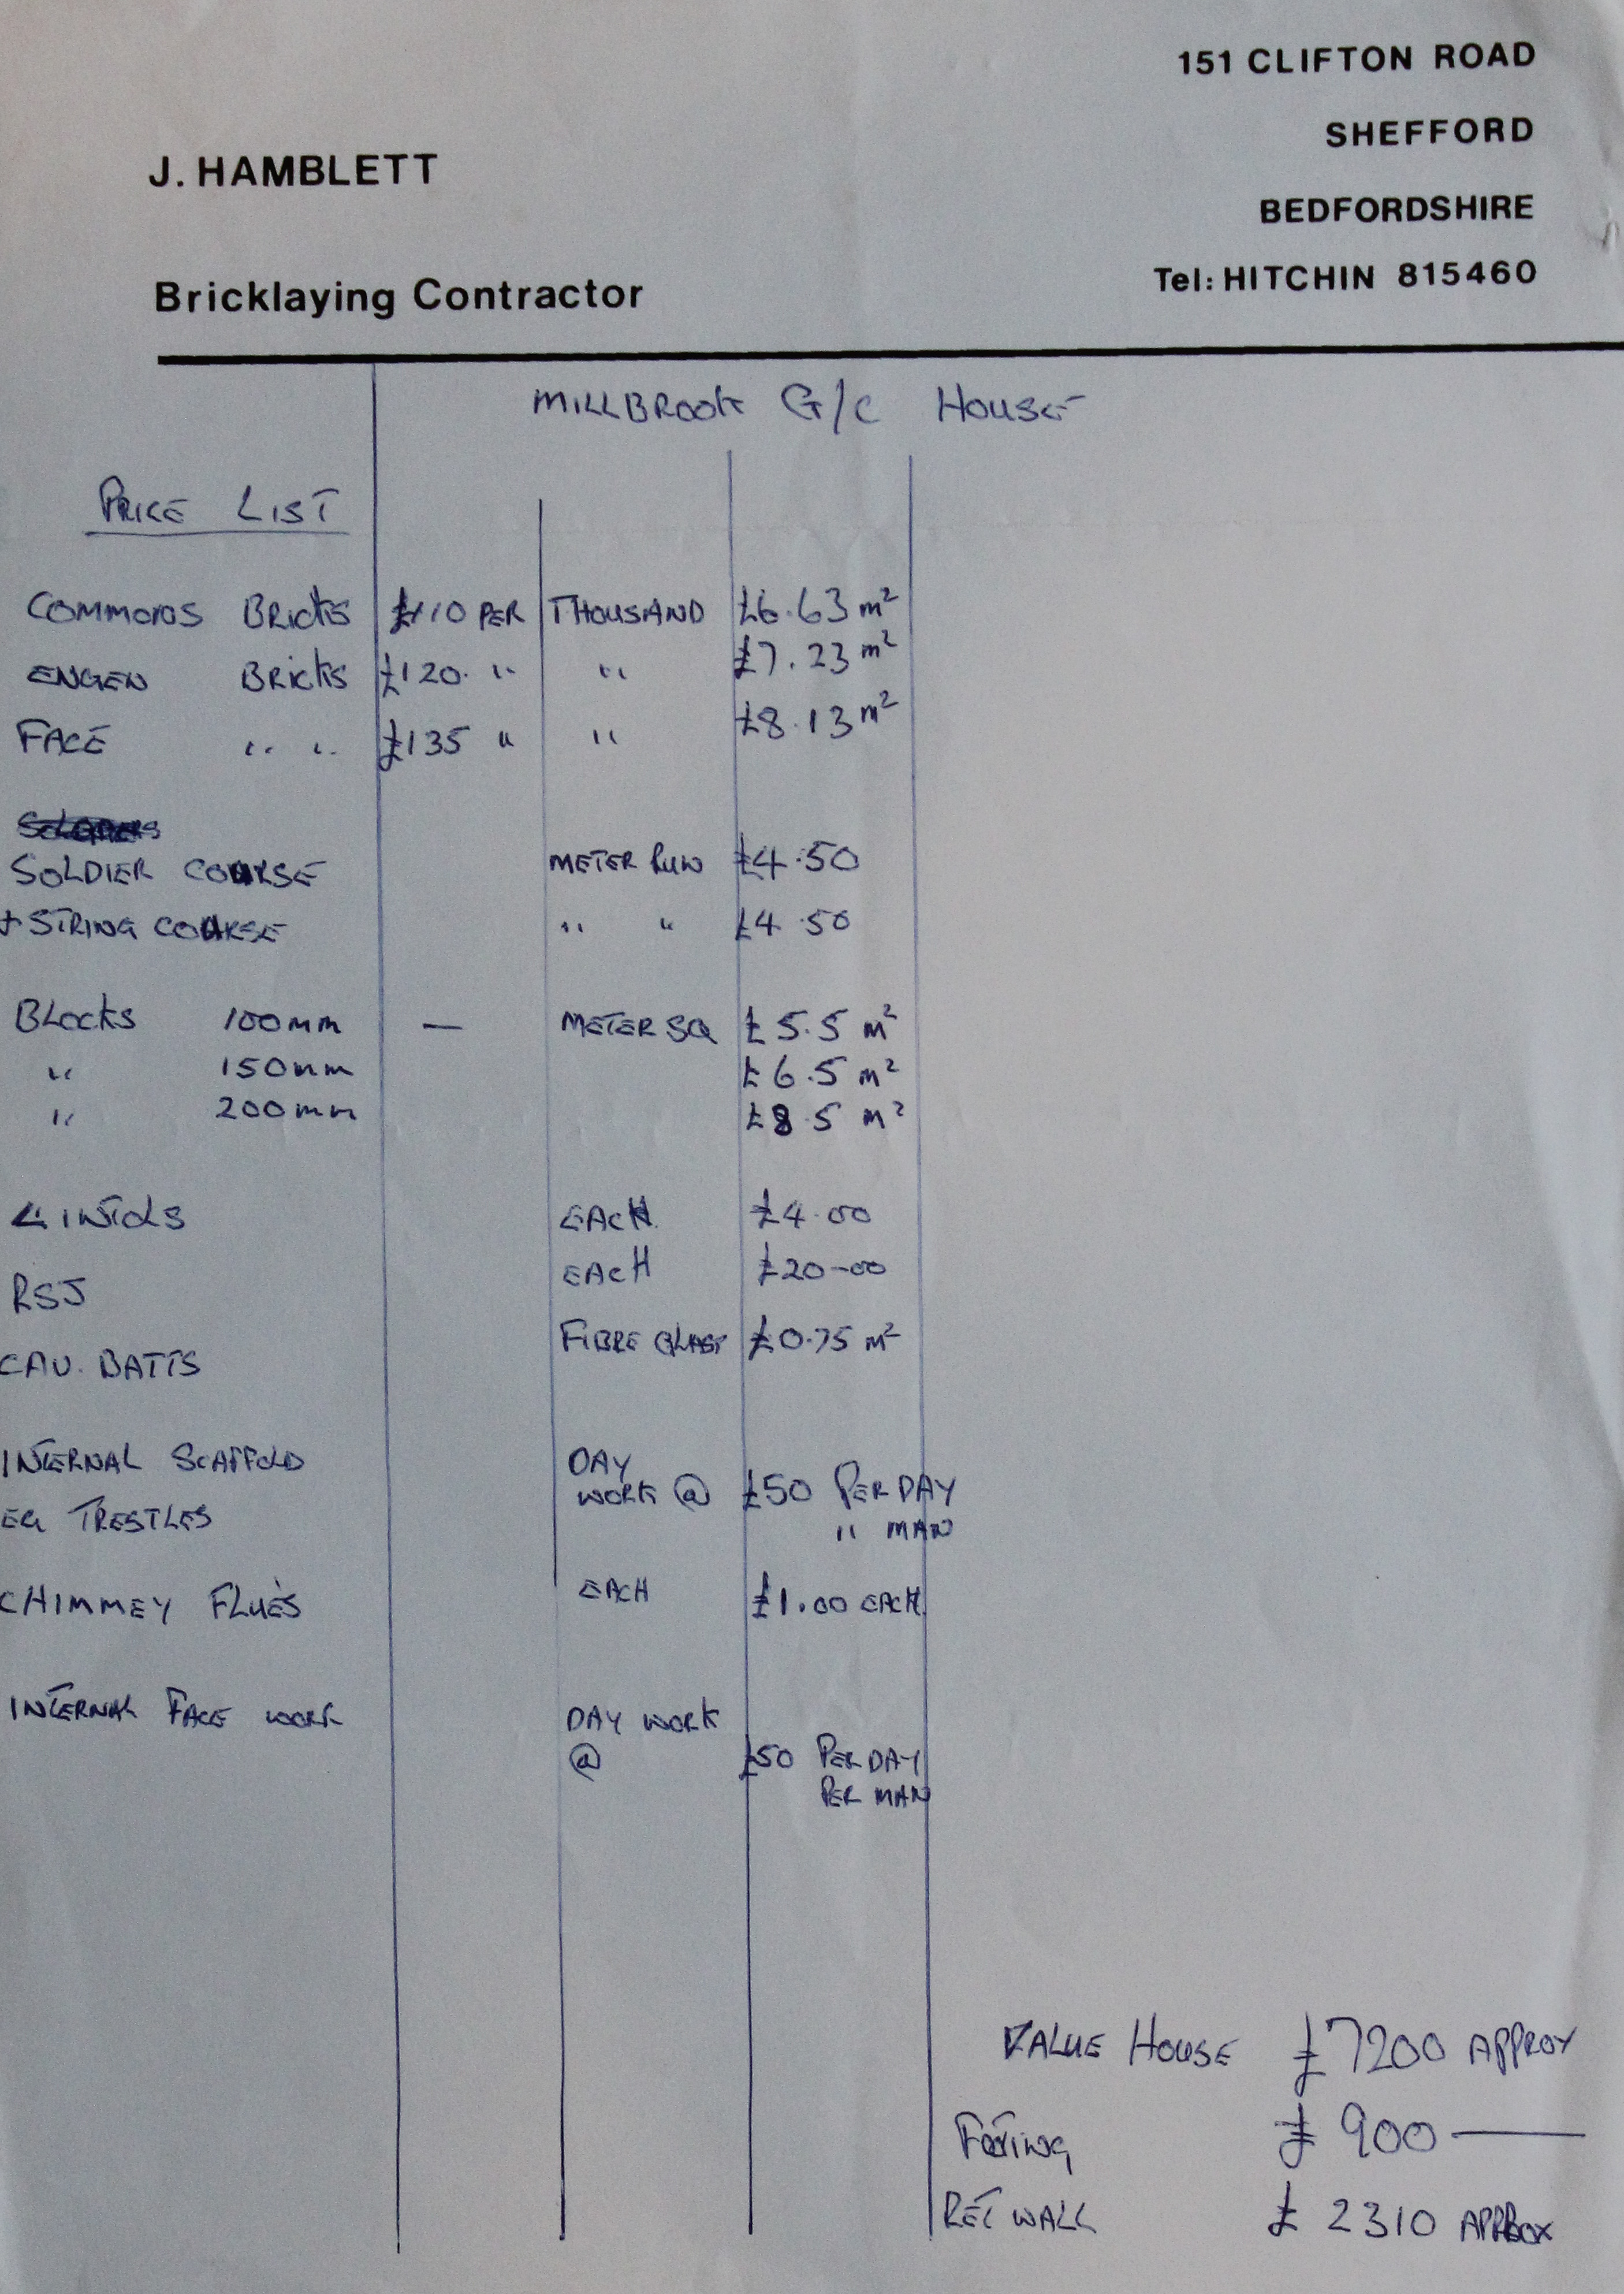 151 CLIFTON ROAD
SHEFFORD
J. HAMBLETT
BEDFORDSHIRE
Bricklaying Contractor
Tel: HITCHIN 815460
MILLBROOK G/C HOUSE
PRICE LIST
COMMONS BRICKS £110 PER THOUSAND £6.63 m²
ENGEN BRICKS £120. " " £7.23 m²
FACE " " £135 " " £8.13 m²
SOLDIER COURSE METER RUN £4.50
+ STRING COURSE " " £4.50
BLOCKS 100mm — METER SQ £5.5 m²
" 150mm £6.5 m²
" 200mm £8.5 m²
LINTOLS EACH £4.00
RSJ EACH £20-00
CAV. BATTS FIBRE GLASS £0.75 m²
INTERNAL SCAFFOLD DAY
EG TRESTLES WORK @ £50 PER DAY
" MAN
CHIMMEY FLUES EACH £1.00 EACH
INTERNAL FACE WORK DAY WORK
@ £50 PER DAY
PER MAN
VALUE HOUSE £7200 APPROX
£900 —
RET WALL £2310 APPROX